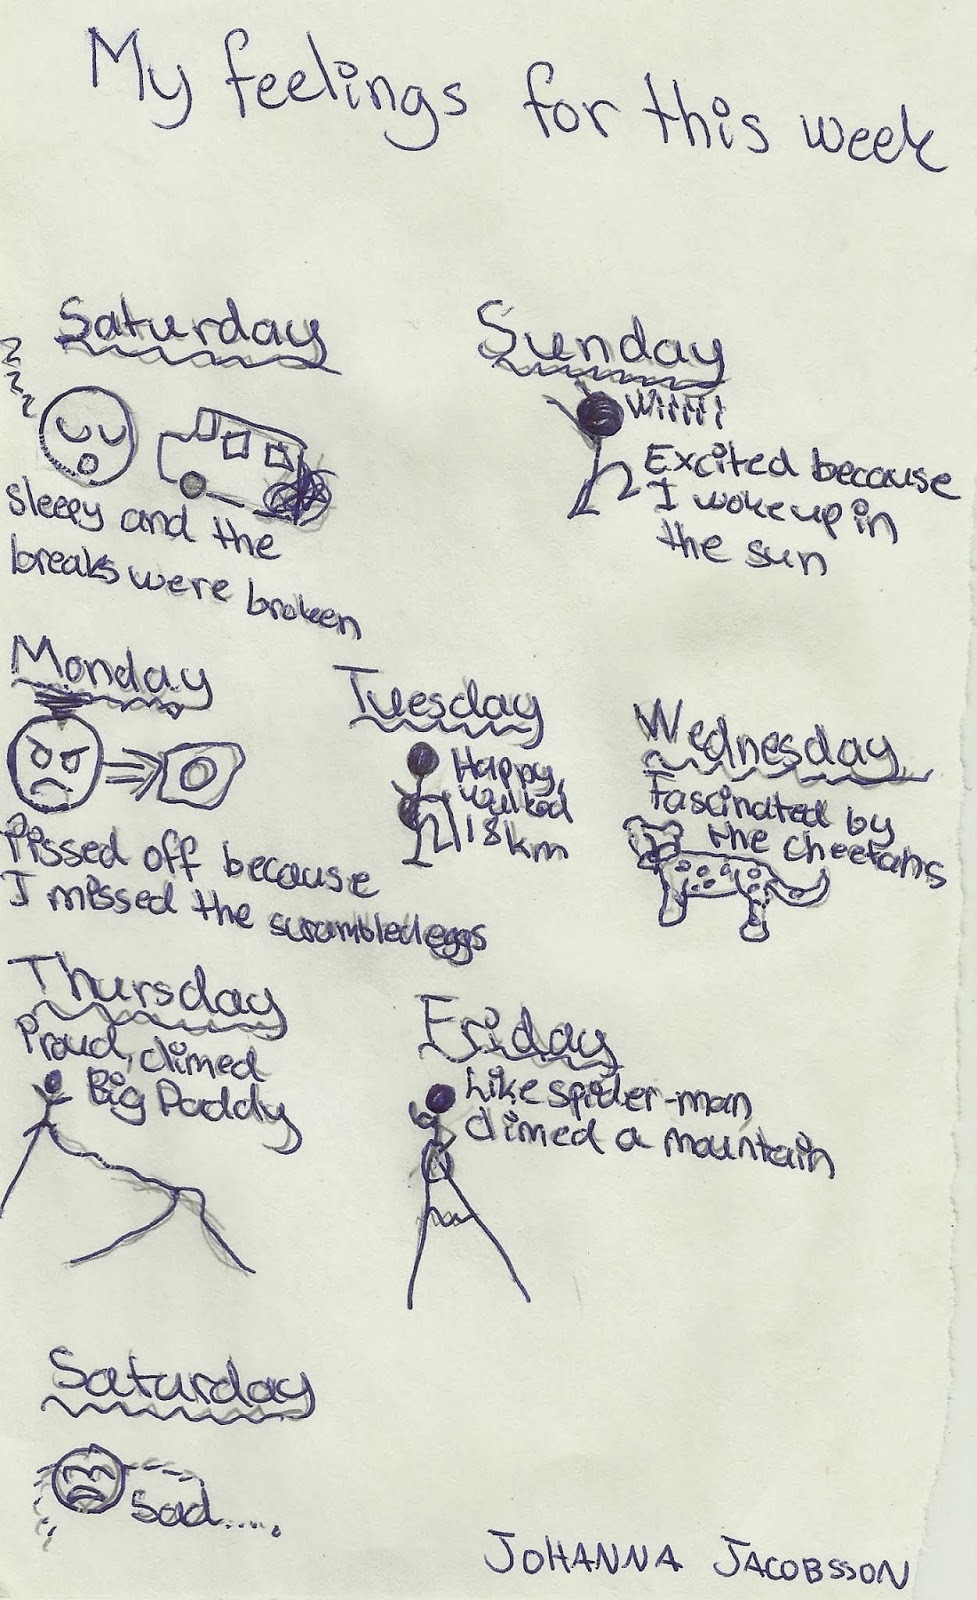 My feelings for this week
Saturday
zzzz
sleepy and the
breaks were broken
Sunday
Wiiiii
Excited because
I woke up in
the sun
Monday
Pissed off because
I missed the scrambled eggs
Tuesday
Happy,
walked
18km
Wednesday
Fascinated by
the cheetahs
Thursday
Proud, climed
Big Daddy
Friday
Like spider-man
climed a mountain
Saturday
Sad.....
JOHANNA JACOBSSON